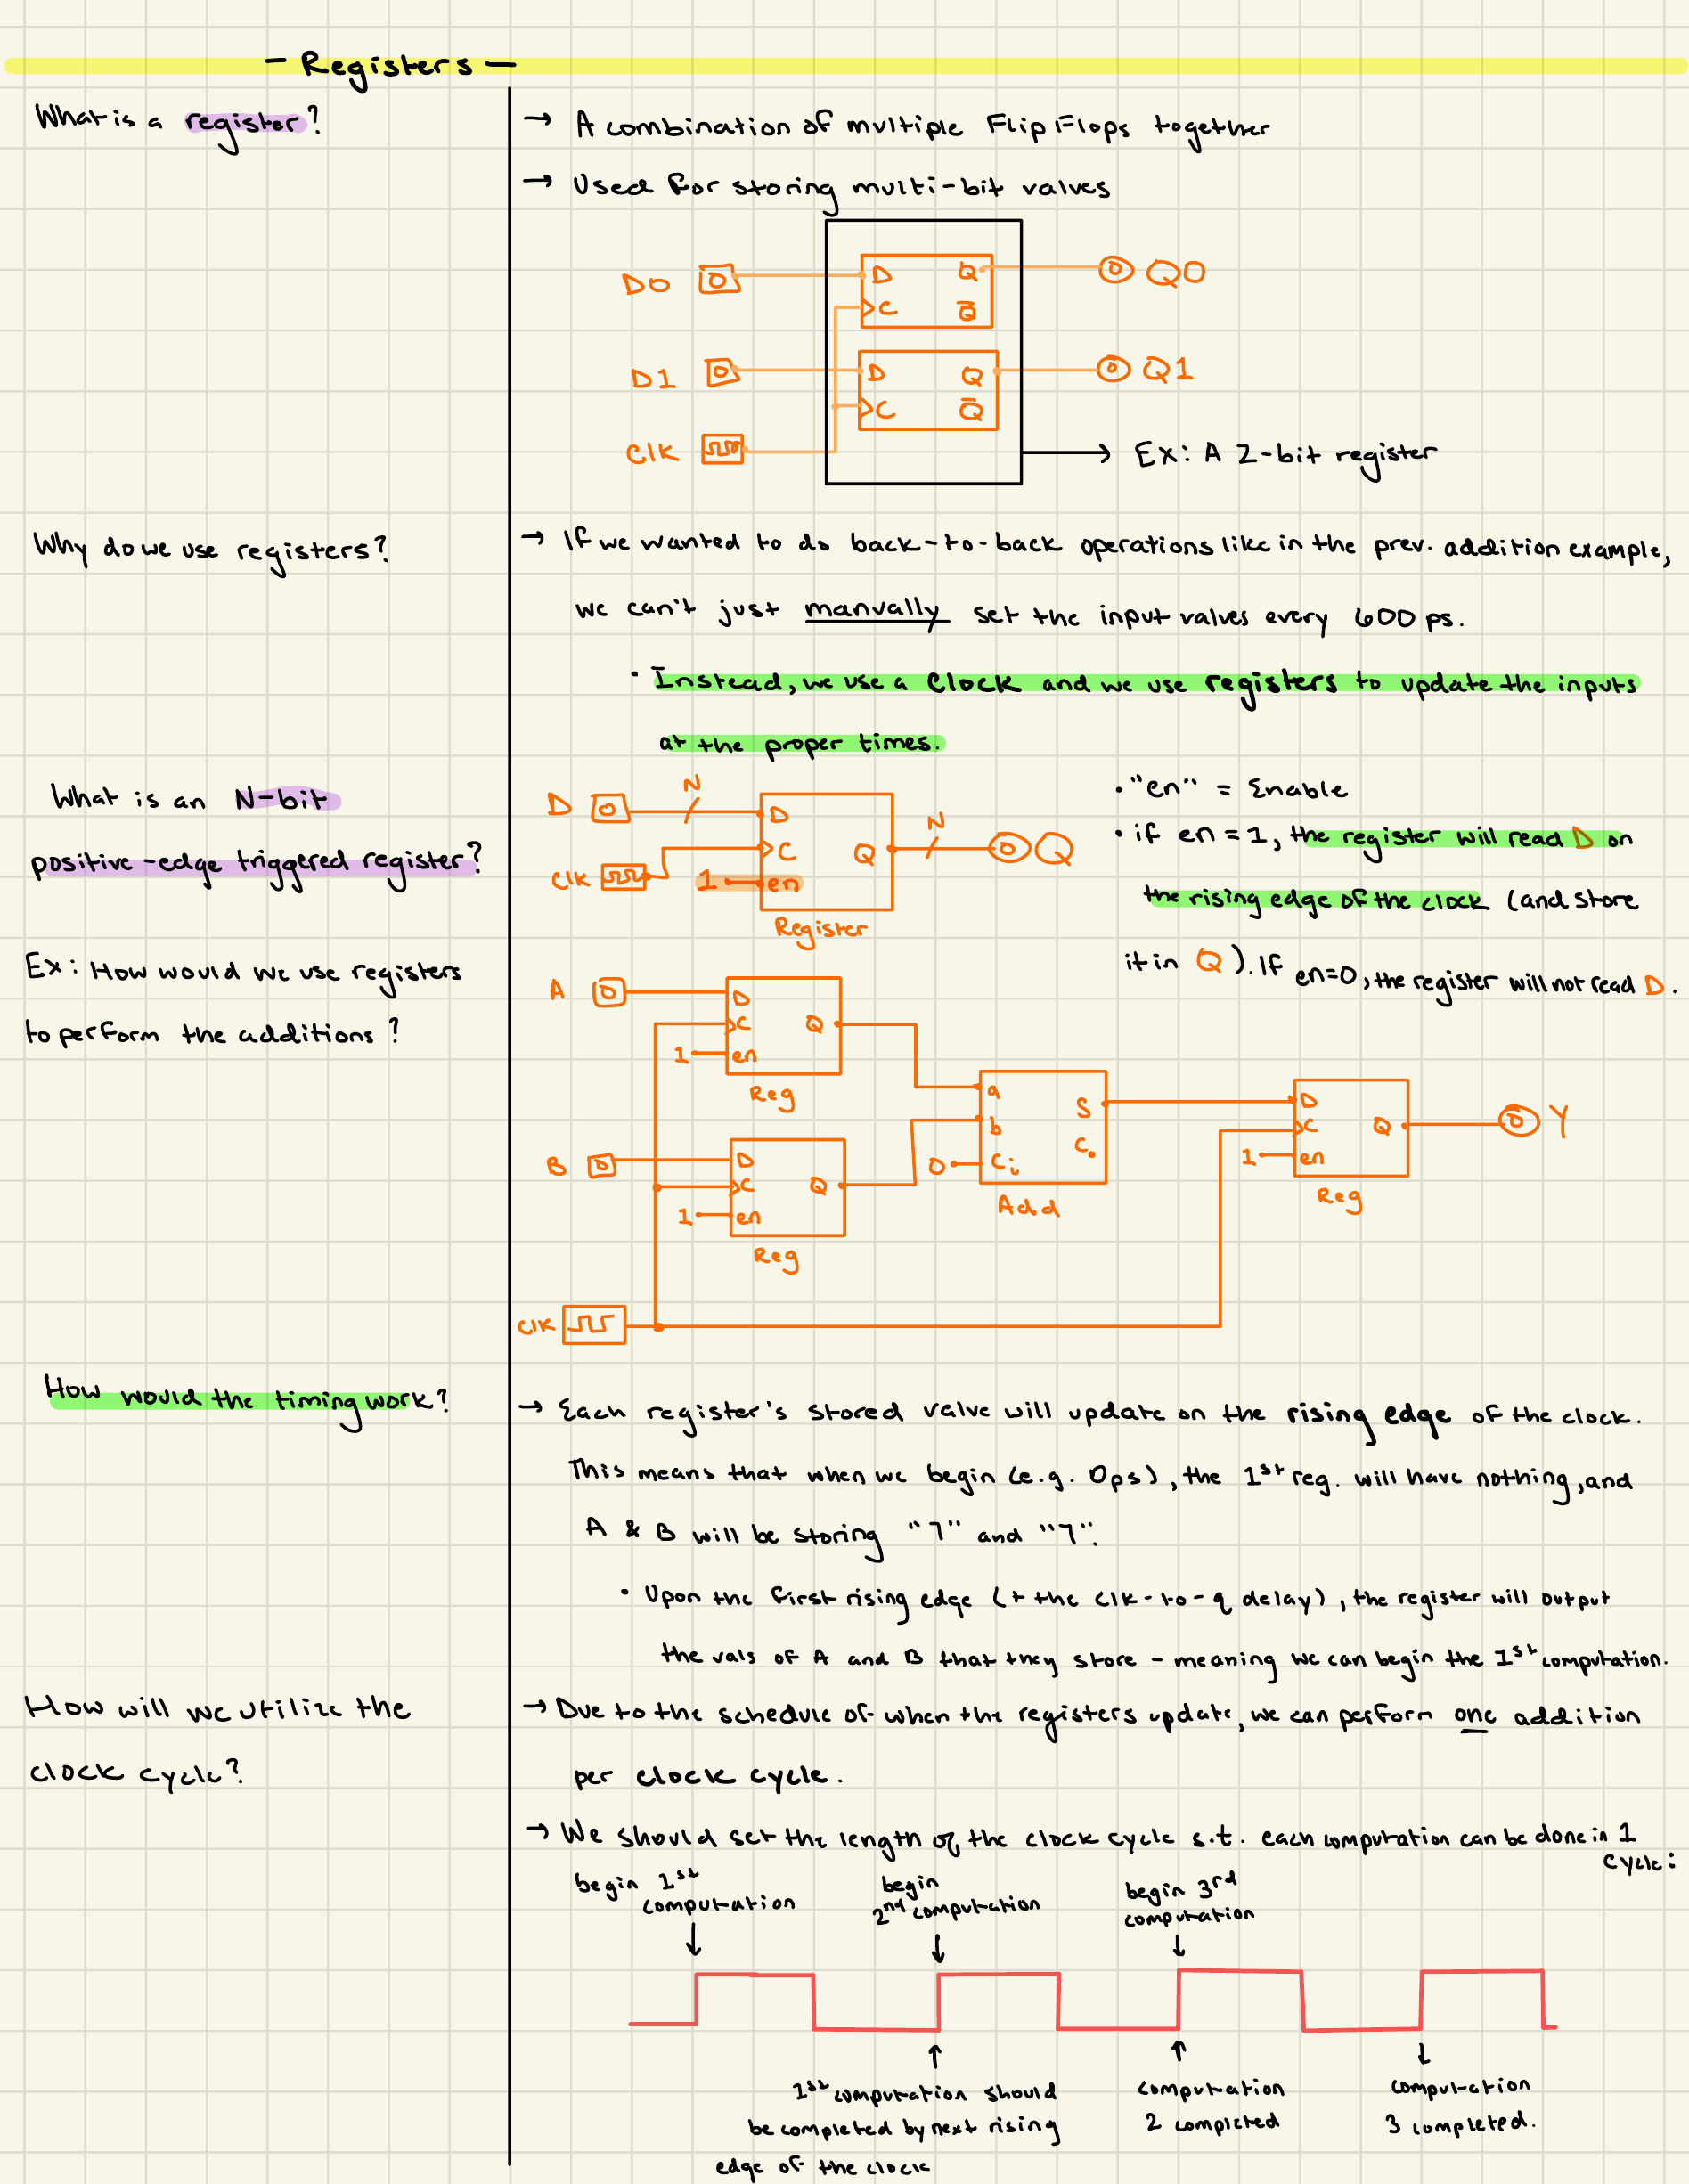 - Registers -
What is a register?
→ A combination of multiple Flip Flops together
→ Used for storing multi-bit values
D0 0 D Q 0 Q0
C Q̅
D1 0 D Q 0 Q1
C Q̅
Clk
→ Ex: A 2-bit register
Why do we use registers?
→ If we wanted to do back-to-back operations like in the prev. addition example,
we can't just manually set the input values every 600 ps.
• Instead, we use a Clock and we use registers to update the inputs
at the proper times.
What is an N-bit
positive-edge triggered register?
D 0 N D
C Q N 0 Q
Clk 1 en
Register
• "en" = Enable
• if en = 1, the register will read D on
the rising edge of the clock (and store
it in Q). If en=0, the register will not read D.
Ex: How would we use registers
to perform the additions?
A 0 D
C Q
1 en
Reg
B 0 D
C Q
1 en
Reg
a S
b Co
0 Ci
Add
D
C Q 0 Y
1 en
Reg
Clk
How would the timing work?
→ Each register's stored value will update on the rising edge of the clock.
This means that when we begin (e.g. 0ps), the 1st reg. will have nothing, and
A & B will be storing "7" and "7".
• Upon the first rising edge (+ the clk-to-q delay), the register will output
the vals of A and B that they store - meaning we can begin the 1st computation.
How will we utilize the
clock cycle?
→ Due to the schedule of when the registers update, we can perform one addition
per clock cycle.
→ We should set the length of the clock cycle s.t. each computation can be done in 1
cycle:
begin 1st
computation
begin
2nd computation
begin 3rd
computation
1st computation should
be completed by next rising
edge of the clock
computation
2 completed
computation
3 completed.